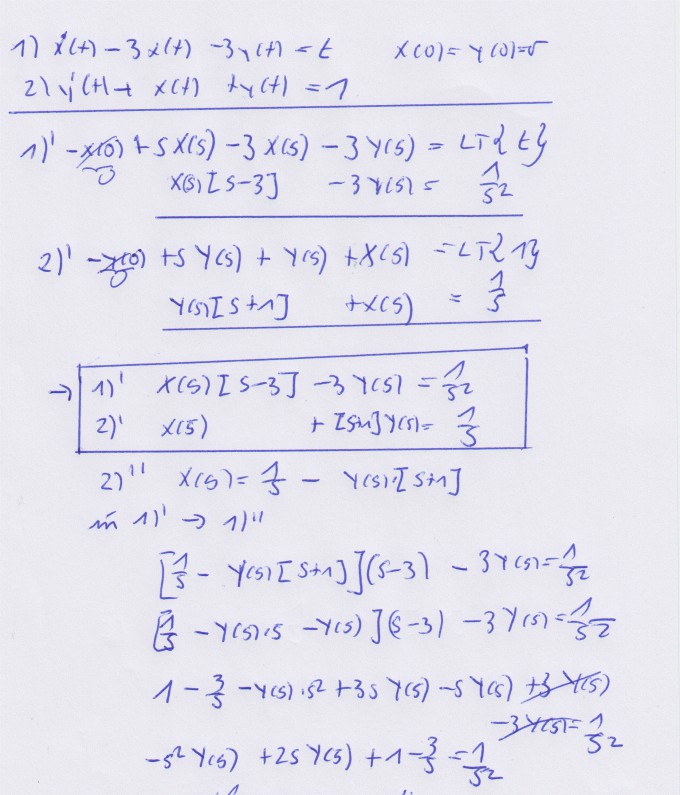 1) ẋ(t) - 3x(t) - 3y(t) = t    x(0) = y(0) = 0
2) ẏ(t) + x(t) + y(t) = 1
1)' -x(0) + s X(s) - 3 X(s) - 3 Y(s) = LT{t}
0
X(s)[s-3] - 3 Y(s) = 1/s²
2)' -y(0) + s Y(s) + Y(s) + X(s) = LT{1}
0
Y(s)[s+1] + X(s) = 1/s
→ 1)' X(s)[s-3] - 3 Y(s) = 1/s²
2)' X(s) + [s+1] Y(s) = 1/s
2)'' X(s) = 1/s - Y(s)·[s+1]
in 1)' → 1)''
[1/s - Y(s)[s+1]](s-3) - 3 Y(s) = 1/s²
[1/s - Y(s)·s - Y(s)](s-3) - 3 Y(s) = 1/s²
1 - 3/s - Y(s)·s² + 3s Y(s) - s Y(s) + 3 Y(s)
- 3 Y(s) = 1/s²
-s² Y(s) + 2s Y(s) + 1 - 3/s = 1/s²